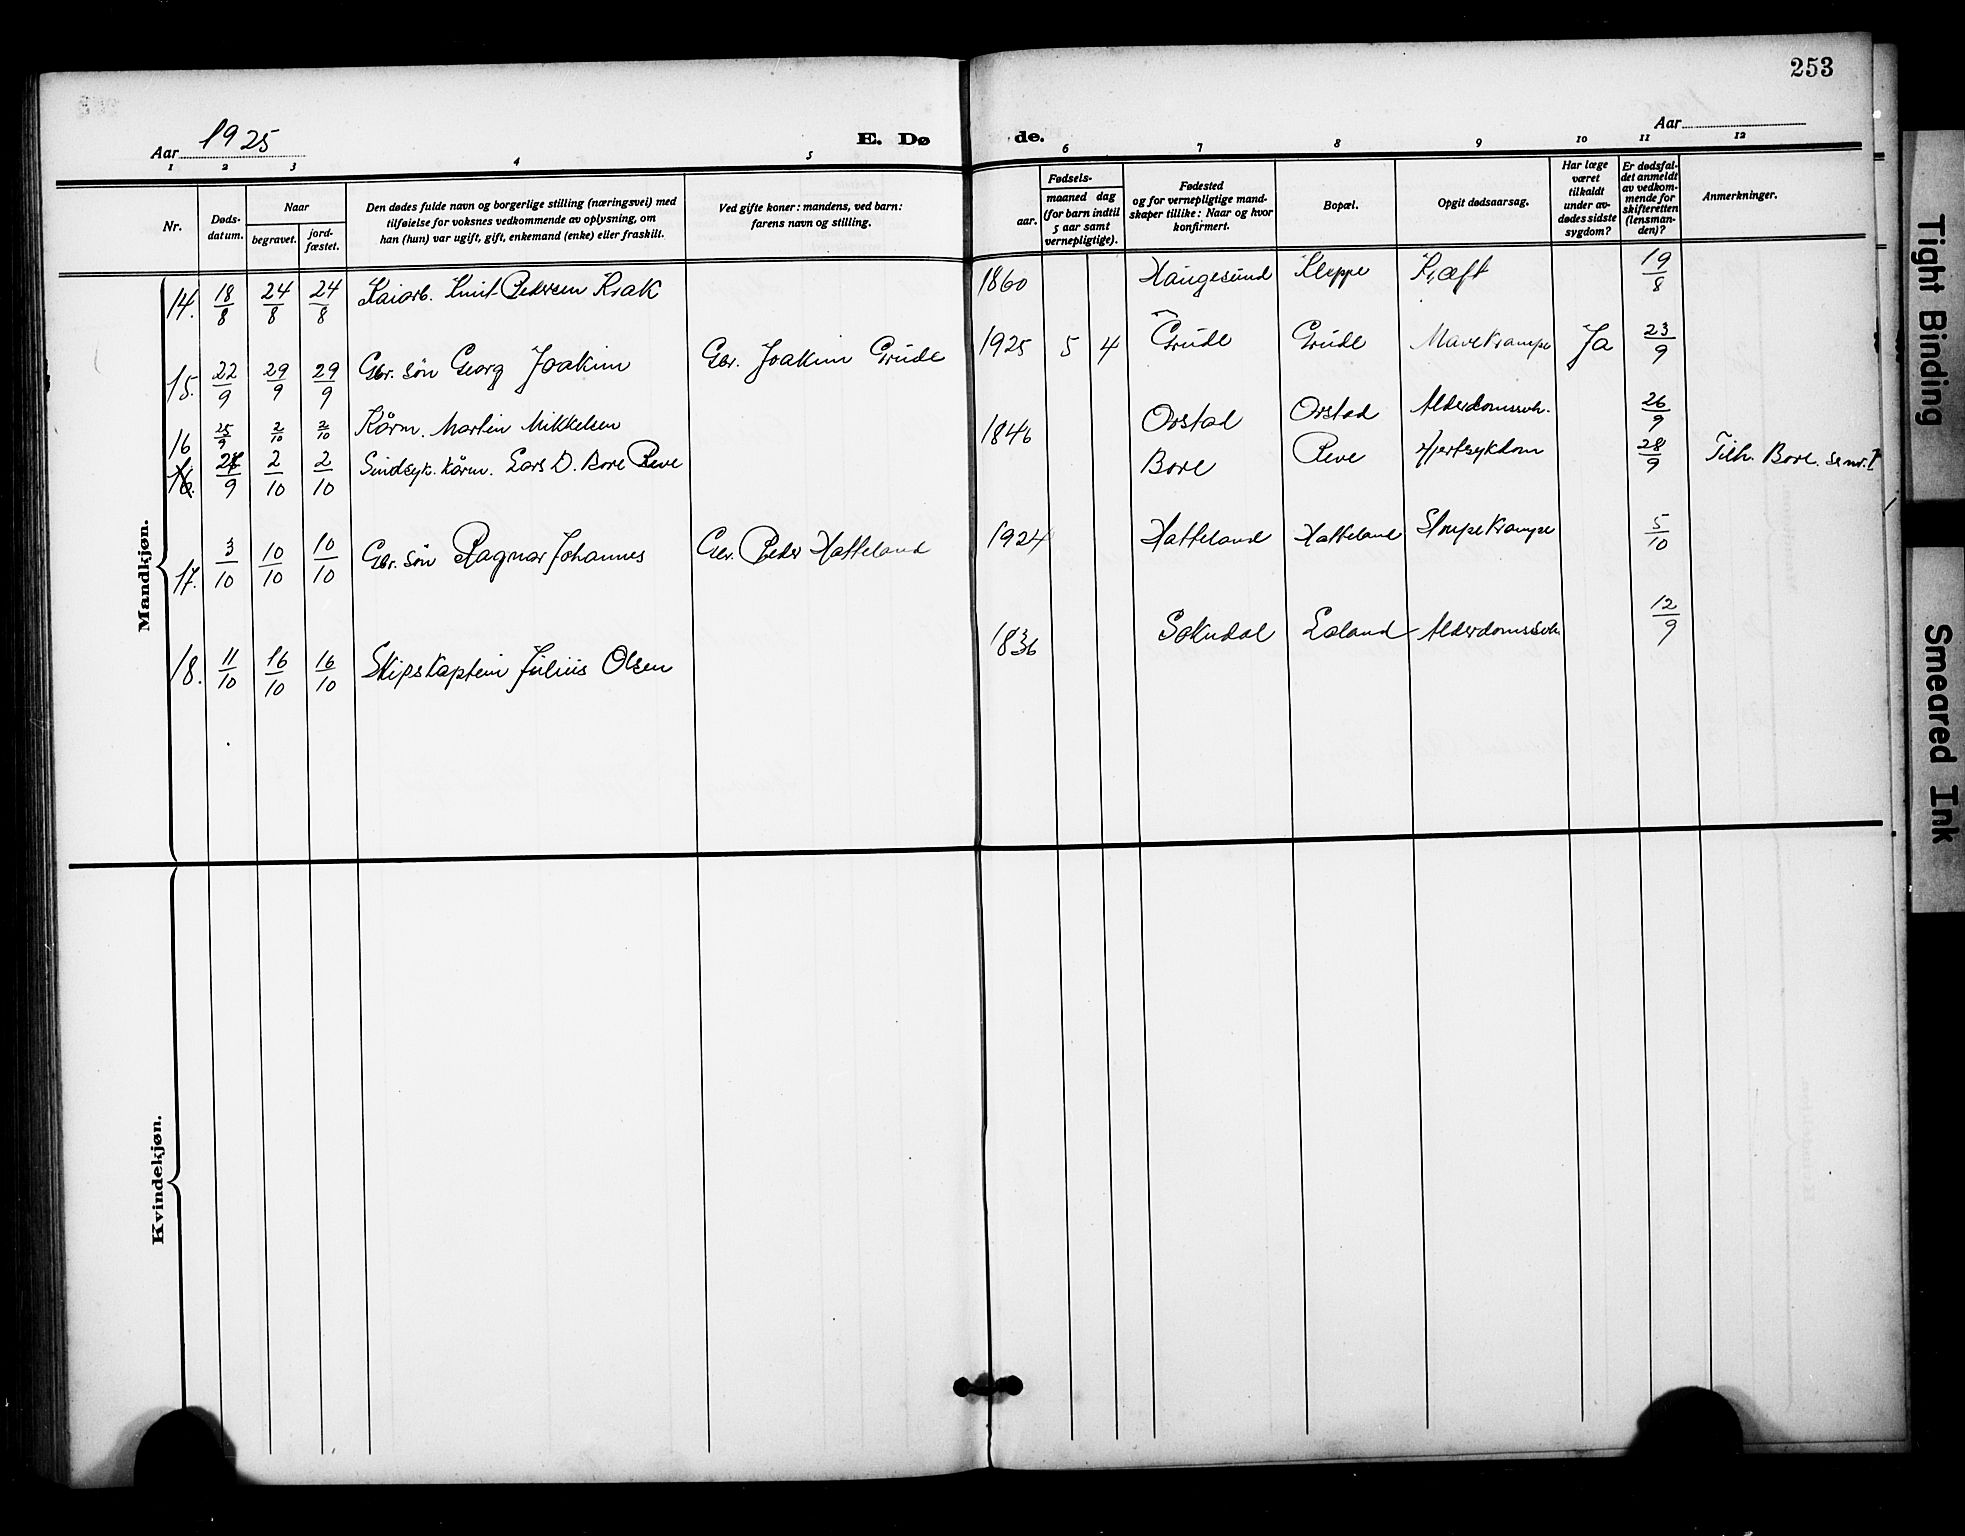 253
Aar 1925
E. Dø de.
Aar
1 2 3 4 5 6 7 8 9 10 11 12
Nr.
Døds-
datum.
Naar
begravet.
jord-
fæstet.
Den dødes fulde navn og borgerlige stilling (næringsvei) med
tilføielse for voksnes vedkommende av oplysning, om
han (hun) var ugift, gift, enkemand (enke) eller fraskilt.
Ved gifte koner: mandens, ved barn:
farens navn og stilling.
Fødsels-
aar.
maaned dag
(for barn indtil
5 aar samt
vernepligtige).
Fødested
og for vernepligtige mand-
skaper tillike: Naar og hvor
konfirmert.
Bopæl.
Opgit dødsaarsag.
Har læge
været
tilkaldt
under av-
dødes sidste
sygdom?
Er dødsfal-
det anmeldt
av vedkom-
mende for
skifteretten
(lensman-
den)?
Anmerkninger.
Mandkjøn.
14. 18/8 24/8 24/8 Kaiarb. Knut Pedersen Krak 1860 Haugesund Kleppe Kræft 19/8
15. 22/9 29/9 29/9 Gbr. søn Georg Joakim Gbr. Joakim Grude 1925 5 4 Grude Grude Mavekrampe Ja 23/9
16 25/9 2/10 2/10 Kårm. Martin Mikkelsen 1846 Orstad Orstad Alderdomssvh. 26/9
16. 9 2/10 2/10 Sindsyk. kårm. Lars D. Bore Reve Bore Reve Hjertsykdom 28/9 Tilh. Bore.
17. 3/10 10/10 10/10 Gbr. søn Ragnar Johannes Gbr. Peder Hatteland 1924 Hatteland Hatteland Strupekrampe 5/10
18. 11/10 16/10 16/10 Skipskaptein Julius Olsen 1836 Sokndal Laland Alderdomssvh. 12/9
Kvindekjøn.
Tight Binding
Smeared Ink